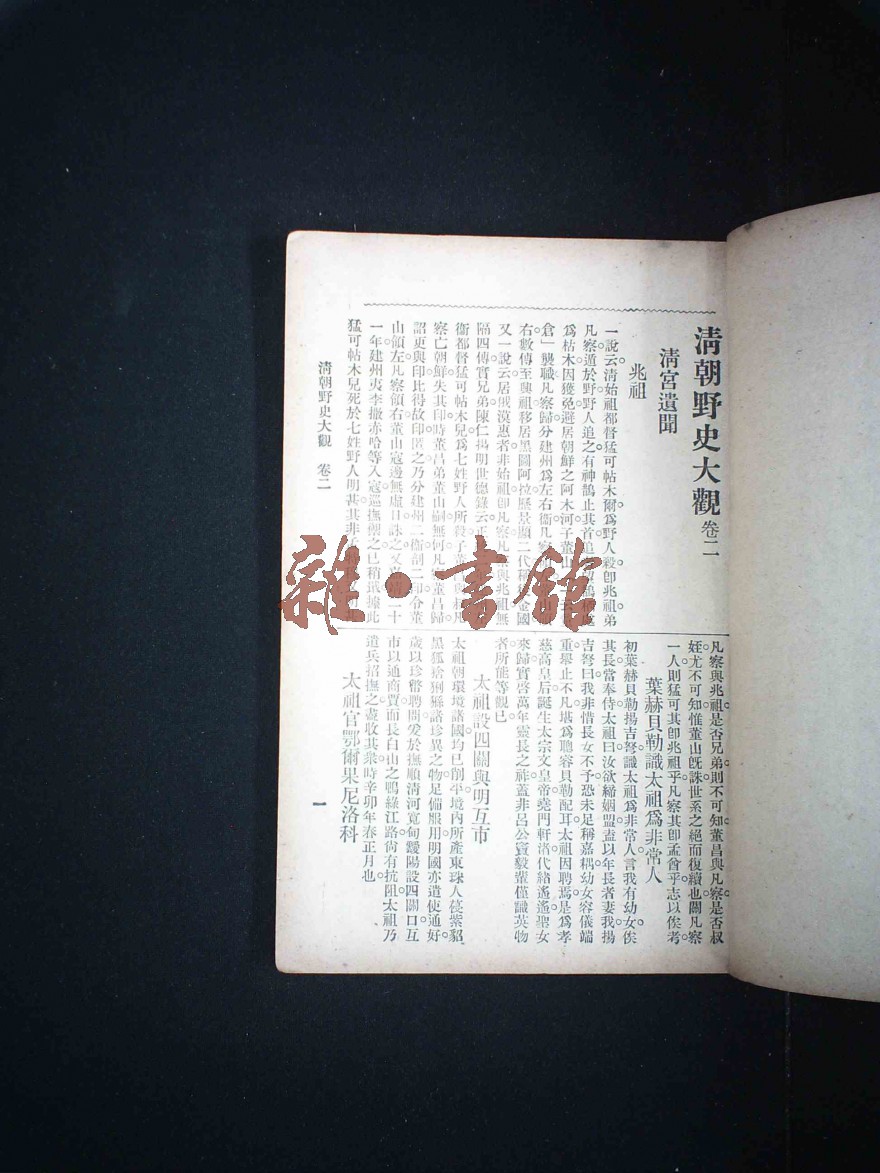 清朝野史大觀 卷二
清宮遺聞
兆祖
一說云清始祖都督猛可帖木爾爲野人殺卽兆祖弟
凡察遁於野野人追之有神鵲止其首追
爲枯木因獲免避居朝鮮之阿木河子董山
倉」襲職凡察歸分建州爲左右衞凡察
右數傳至興祖移居黑圖阿拉歷景顯二代
又一說云居俄漠惠者非始祖卽凡察凡
隔四傳實兄弟陳仁錫明世德錄云正
衞都督猛可帖木兒爲七姓野人所殺子董
察亡朝鮮失其印時董昌弟董山嗣無何凡
詔更與印比得故印匿之乃分建州二衞剖二印令董
山領左凡察領右董山寇邊無虛日誅之
一年建州夷李撒赤哈等入寇巡撫覈之巳稍
猛可帖木兒死於七姓野人明甚其非
凡察與兆祖是否兄弟則不可知董昌與凡察是否叔
姪尤不可知惟董山旣誅世系之絕而復續也關凡察
一人則猛可其卽兆祖乎凡察其卽孟曾乎志以俟考
葉赫貝勒識太祖爲非常人
初葉赫貝勒揚吉努識太祖爲非常人言我有幼女俟
其長當奉侍太祖曰汝欲締姻盟盍以年長者妻我揚
吉努曰我非惜長女不予恐未足稱嘉耦幼女容儀端
重舉止不凡堪爲聰容貝勒配耳太祖因聘焉是爲孝
慈高皇后誕生太宗文皇帝堯門軒渚代緒遙遙聖女
來歸實啓萬年靈長之祚蓋非呂公竇毅輩僅識英物
者所能等觀已
太祖設四關與明互市
太祖朝環境諸國均巳削平境內所產東珠人葠紫貂
黑狐猞猁猻諸珍異之物足備服用明國亦遣使通好
歲以珍幣聘問爰於撫順淸河寬甸靉陽設四關口互
市以通商賈而長白山之鴨綠江路尙有抗阻太祖乃
遣兵招撫之盡收其衆時辛卯年春正月也
太祖官鄂爾果尼洛科
淸朝野史大觀 卷二
一
雜·書館